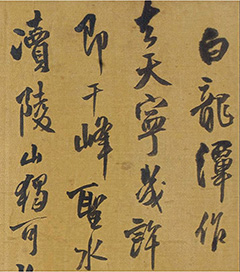 白龍潭作
去天寧幾許
即千峰聖水
瀆陵山獨可